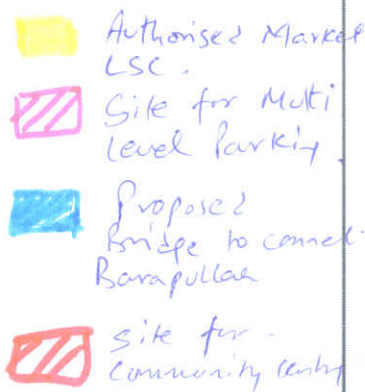 Authorised Market
LSC.
Site for Multi
Level Parking.
Proposed
Bridge to connect
Barapullah
site for
Community Centre